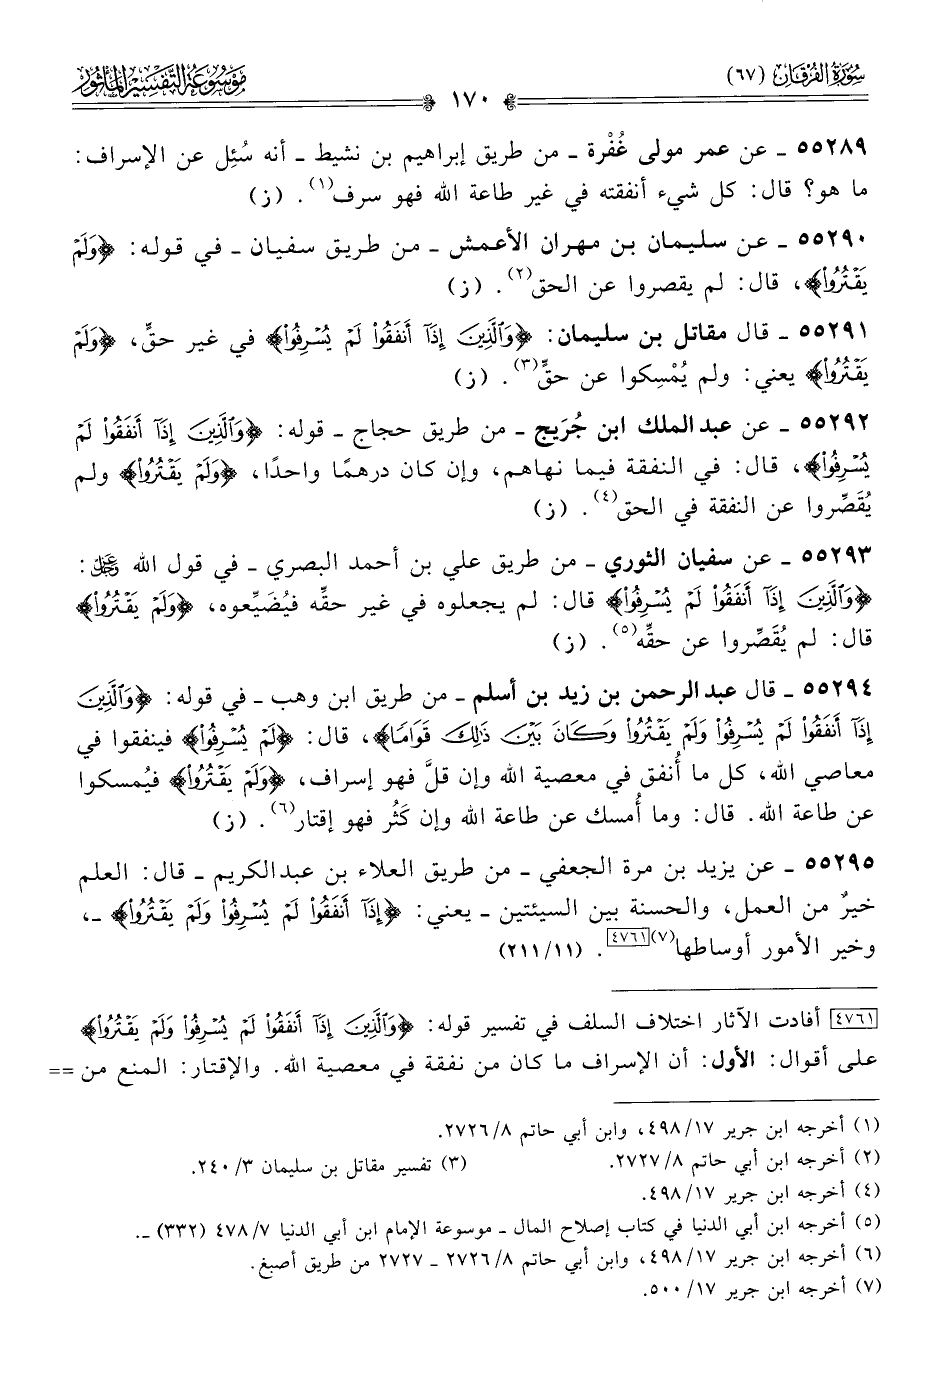 سُورَةُ الفُرْقَان (٦٧)
١٧٠
مَوْسُوعَة التَّفْسِيرِ المَأْثُور
٥٥٢٨٩ ـ عن عمر مولى غُفْرة ـ من طريق إبراهيم بن نشيط ـ أنه سُئِل عن الإسراف:
ما هو؟ قال: كل شيء أنفقته في غير طاعة الله فهو سرف(١). (ز)
٥٥٢٩٠ ـ عن سليمان بن مهران الأعمش ـ من طريق سفيان ـ في قوله: ﴿وَلَمْ
يَقْتُرُوا۟﴾، قال: لم يقصروا عن الحق(٢). (ز)
٥٥٢٩١ ـ قال مقاتل بن سليمان: ﴿وَٱلَّذِينَ إِذَآ أَنفَقُوا۟ لَمْ يُسْرِفُوا۟﴾ في غير حقٍّ، ﴿وَلَمْ
يَقْتُرُوا۟﴾ يعني: ولم يُمْسِكوا عن حقٍّ(٣). (ز)
٥٥٢٩٢ ـ عن عبد الملك ابن جُرَيج ـ من طريق حجاج ـ قوله: ﴿وَٱلَّذِينَ إِذَآ أَنفَقُوا۟ لَمْ
يُسْرِفُوا۟﴾، قال: في النفقة فيما نهاهم، وإن كان درهمًا واحدًا، ﴿وَلَمْ يَقْتُرُوا۟﴾ ولم
يُقَصِّروا عن النفقة في الحق(٤). (ز)
٥٥٢٩٣ ـ عن سفيان الثوري ـ من طريق علي بن أحمد البصري ـ في قول الله ﷿:
﴿وَٱلَّذِينَ إِذَآ أَنفَقُوا۟ لَمْ يُسْرِفُوا۟﴾ قال: لم يجعلوه في غير حقِّه فيُضَيِّعوه، ﴿وَلَمْ يَقْتُرُوا۟﴾
قال: لم يُقَصِّروا عن حقِّه(٥). (ز)
٥٥٢٩٤ ـ قال عبد الرحمن بن زيد بن أسلم ـ من طريق ابن وهب ـ في قوله: ﴿وَٱلَّذِينَ
إِذَآ أَنفَقُوا۟ لَمْ يُسْرِفُوا۟ وَلَمْ يَقْتُرُوا۟ وَكَانَ بَيْنَ ذَٰلِكَ قَوَامًا﴾، قال: ﴿لَمْ يُسْرِفُوا۟﴾ فينفقوا في
معاصي الله، كل ما أُنفق في معصية الله وإن قلَّ فهو إسراف، ﴿وَلَمْ يَقْتُرُوا۟﴾ فيُمسكوا
عن طاعة الله. قال: وما أُمسك عن طاعة الله وإن كَثُر فهو إقتار(٦). (ز)
٥٥٢٩٥ ـ عن يزيد بن مرة الجعفي ـ من طريق العلاء بن عبد الكريم ـ قال: العلم
خيرٌ من العمل، والحسنة بين السيئتين ـ يعني: ﴿إِذَآ أَنفَقُوا۟ لَمْ يُسْرِفُوا۟ وَلَمْ يَقْتُرُوا۟﴾ ـ،
وخير الأمور أوساطها(٧)[٤٧٦١]. (٢١١/١١)
[٤٧٦١] أفادت الآثار اختلاف السلف في تفسير قوله: ﴿وَٱلَّذِينَ إِذَآ أَنفَقُوا۟ لَمْ يُسْرِفُوا۟ وَلَمْ يَقْتُرُوا۟﴾
على أقوال: الأول: أن الإسراف ما كان من نفقة في معصية الله. والإقتار: المنع من ==
(١) أخرجه ابن جرير ٤٩٨/١٧، وابن أبي حاتم ٢٧٢٦/٨.
(٢) أخرجه ابن أبي حاتم ٢٧٢٧/٨. (٣) تفسير مقاتل بن سليمان ٢٤٠/٣.
(٤) أخرجه ابن جرير ٤٩٨/١٧.
(٥) أخرجه ابن أبي الدنيا في كتاب إصلاح المال ـ موسوعة الإمام ابن أبي الدنيا ٤٧٨/٧ (٣٣٢) ـ.
(٦) أخرجه ابن جرير ٤٩٨/١٧، وابن أبي حاتم ٢٧٢٦/٨ ـ ٢٧٢٧ من طريق أصبغ.
(٧) أخرجه ابن جرير ٥٠٠/١٧.